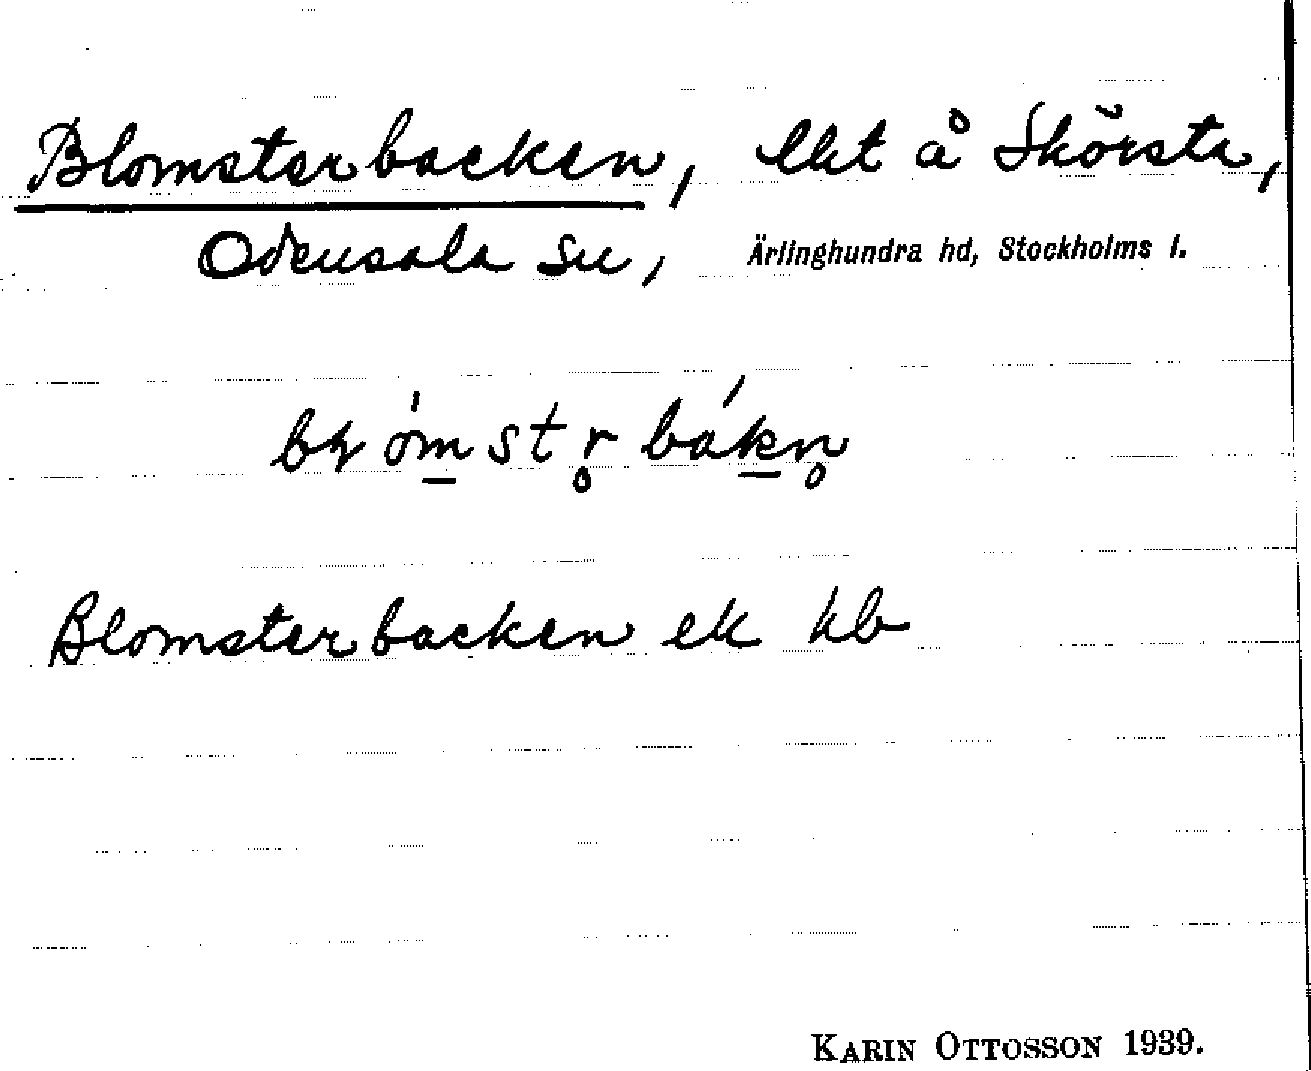 Blomsterbacken, lht å Skörsta,
Odensala sn, Ärlinghundra hd, Stockholms l.
Blomsterbacken ek kb
KARIN OTTOSSON 1939.